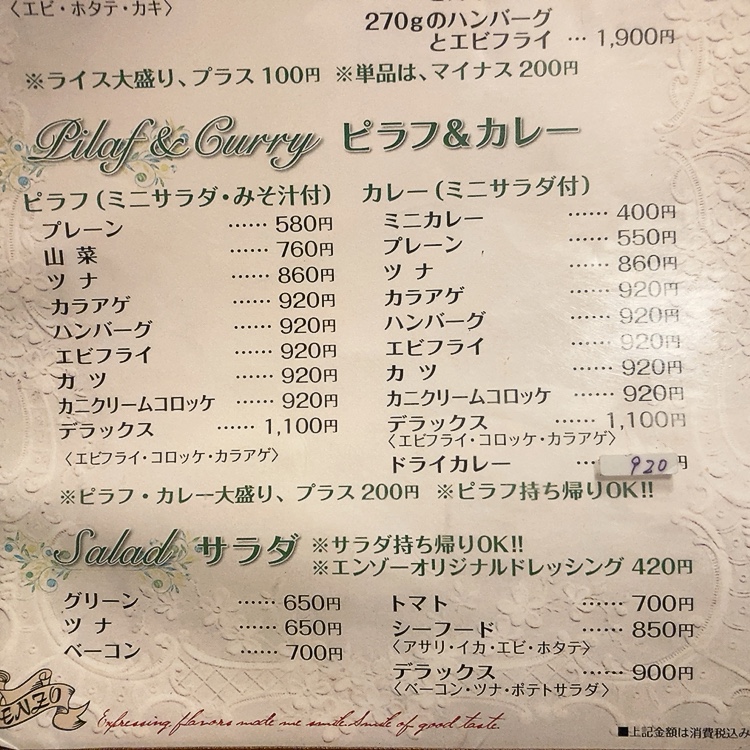 〈エビ・ホタテ・カキ〉
270gのハンバーグ
とエビフライ … 1,900円
※ライス大盛り、プラス100円 ※単品は、マイナス200円
Pilaf & Curry ピラフ&カレー
ピラフ(ミニサラダ・みそ汁付)
プレーン …… 580円
山菜 …… 760円
ツナ …… 860円
カラアゲ …… 920円
ハンバーグ …… 920円
エビフライ …… 920円
カツ …… 920円
カニクリームコロッケ …… 920円
デラックス …… 1,100円
〈エビフライ・コロッケ・カラアゲ〉
カレー(ミニサラダ付)
ミニカレー …… 400円
プレーン …… 550円
ツナ …… 860円
カラアゲ …… 920円
ハンバーグ …… 920円
エビフライ …… 920円
カツ …… 920円
カニクリームコロッケ …… 920円
デラックス …… 1,100円
〈エビフライ・コロッケ・カラアゲ〉
ドライカレー … 920円
※ピラフ・カレー大盛り、プラス200円 ※ピラフ持ち帰りOK!!
Salad サラダ ※サラダ持ち帰りOK!!
※エンゾーオリジナルドレッシング 420円
グリーン …… 650円
ツナ …… 650円
ベーコン …… 700円
トマト …… 700円
シーフード …… 850円
〈アサリ・イカ・エビ・ホタテ〉
デラックス …… 900円
〈ベーコン・ツナ・ポテトサラダ〉
ENZO
Expressing flavors made me smile. Smell of good taste.
■上記金額は消費税込み